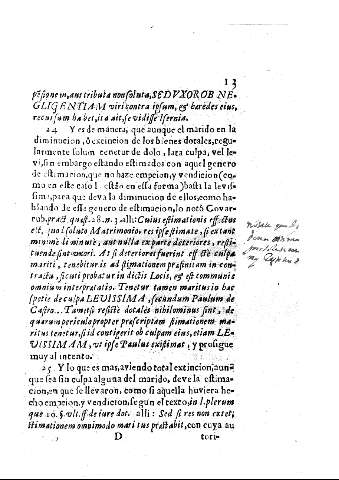 13
pēsionem, aut tributa non soluta, SED VXOR OB NE-
GLIGENTIAM viri contra ipsum, & haredes eius,
recursum habet, ita ait, se vidisse Isernia.
24 Y es de manera, que aunque el marido en la
diminucion, ò extincion de los bienes dotales, regu-
larmente solum tenetur de dolo, lata culpa, vel le-
vi, sin embargo estando estimados con aquel genero
de estimacion, que no haze empcion, y vendicion (co-
mo en este caso lo estàn en essa forma) basta la levis-
sima, para que deva la diminucion de ellos; como ha-
blando de esse genero de estimacion, lo notò Covar-
rub. pract. quæst. 28. n. 3. alli: Cuius estimationis effectus
est, quod soluto Matrimonio, res ipse estimate, si extant
minimè diminutæ, aut nulla ex parte deteriores, resti-
tuendæ sint uxori. At si deteriores fuerint effectæ culpa
mariti, tenebitur is ad æstimationem præsintam in con-
tractu, sicuti probatur in dictis Locis, & est communis
omnium interpretatio. Tenetur tamen maritus in hac
specie de culpa LEVISSIMA, secundum Paulum de
Castro... Tametsi restitæ dotales nihilominus sint, de
quarum periculo propter præscriptam æstimationem ma-
ritus tenetur, si id contigerit ob culpam eius, etiam LE-
VISSIMAM, vt ipse Paulus existimat, y prosigue
muy al intento.
25 Y lo que es mas, aviendo total extincion, aun-
que sea sin culpa alguna del marido, deve la estima-
cion, en que se llevaron, como si aquella huviera he-
cho empcion, y vendicion, segun el texto, in l. plerum
que 10. §. vlt. ff. de iure dot. alli: Sed si res non extet,
æstimationem omnimodo maritus præstabit, con cuya au
D tori-